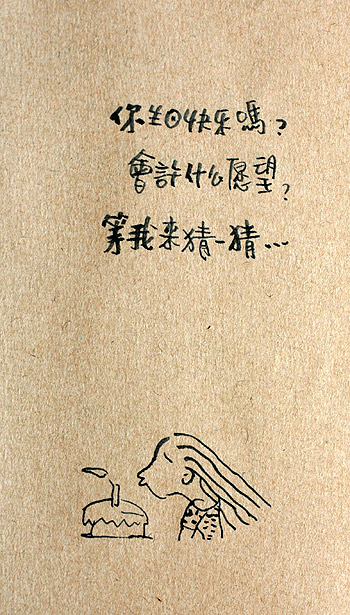 你生日快乐嗎?
會許什么愿望?
等我来猜一猜...